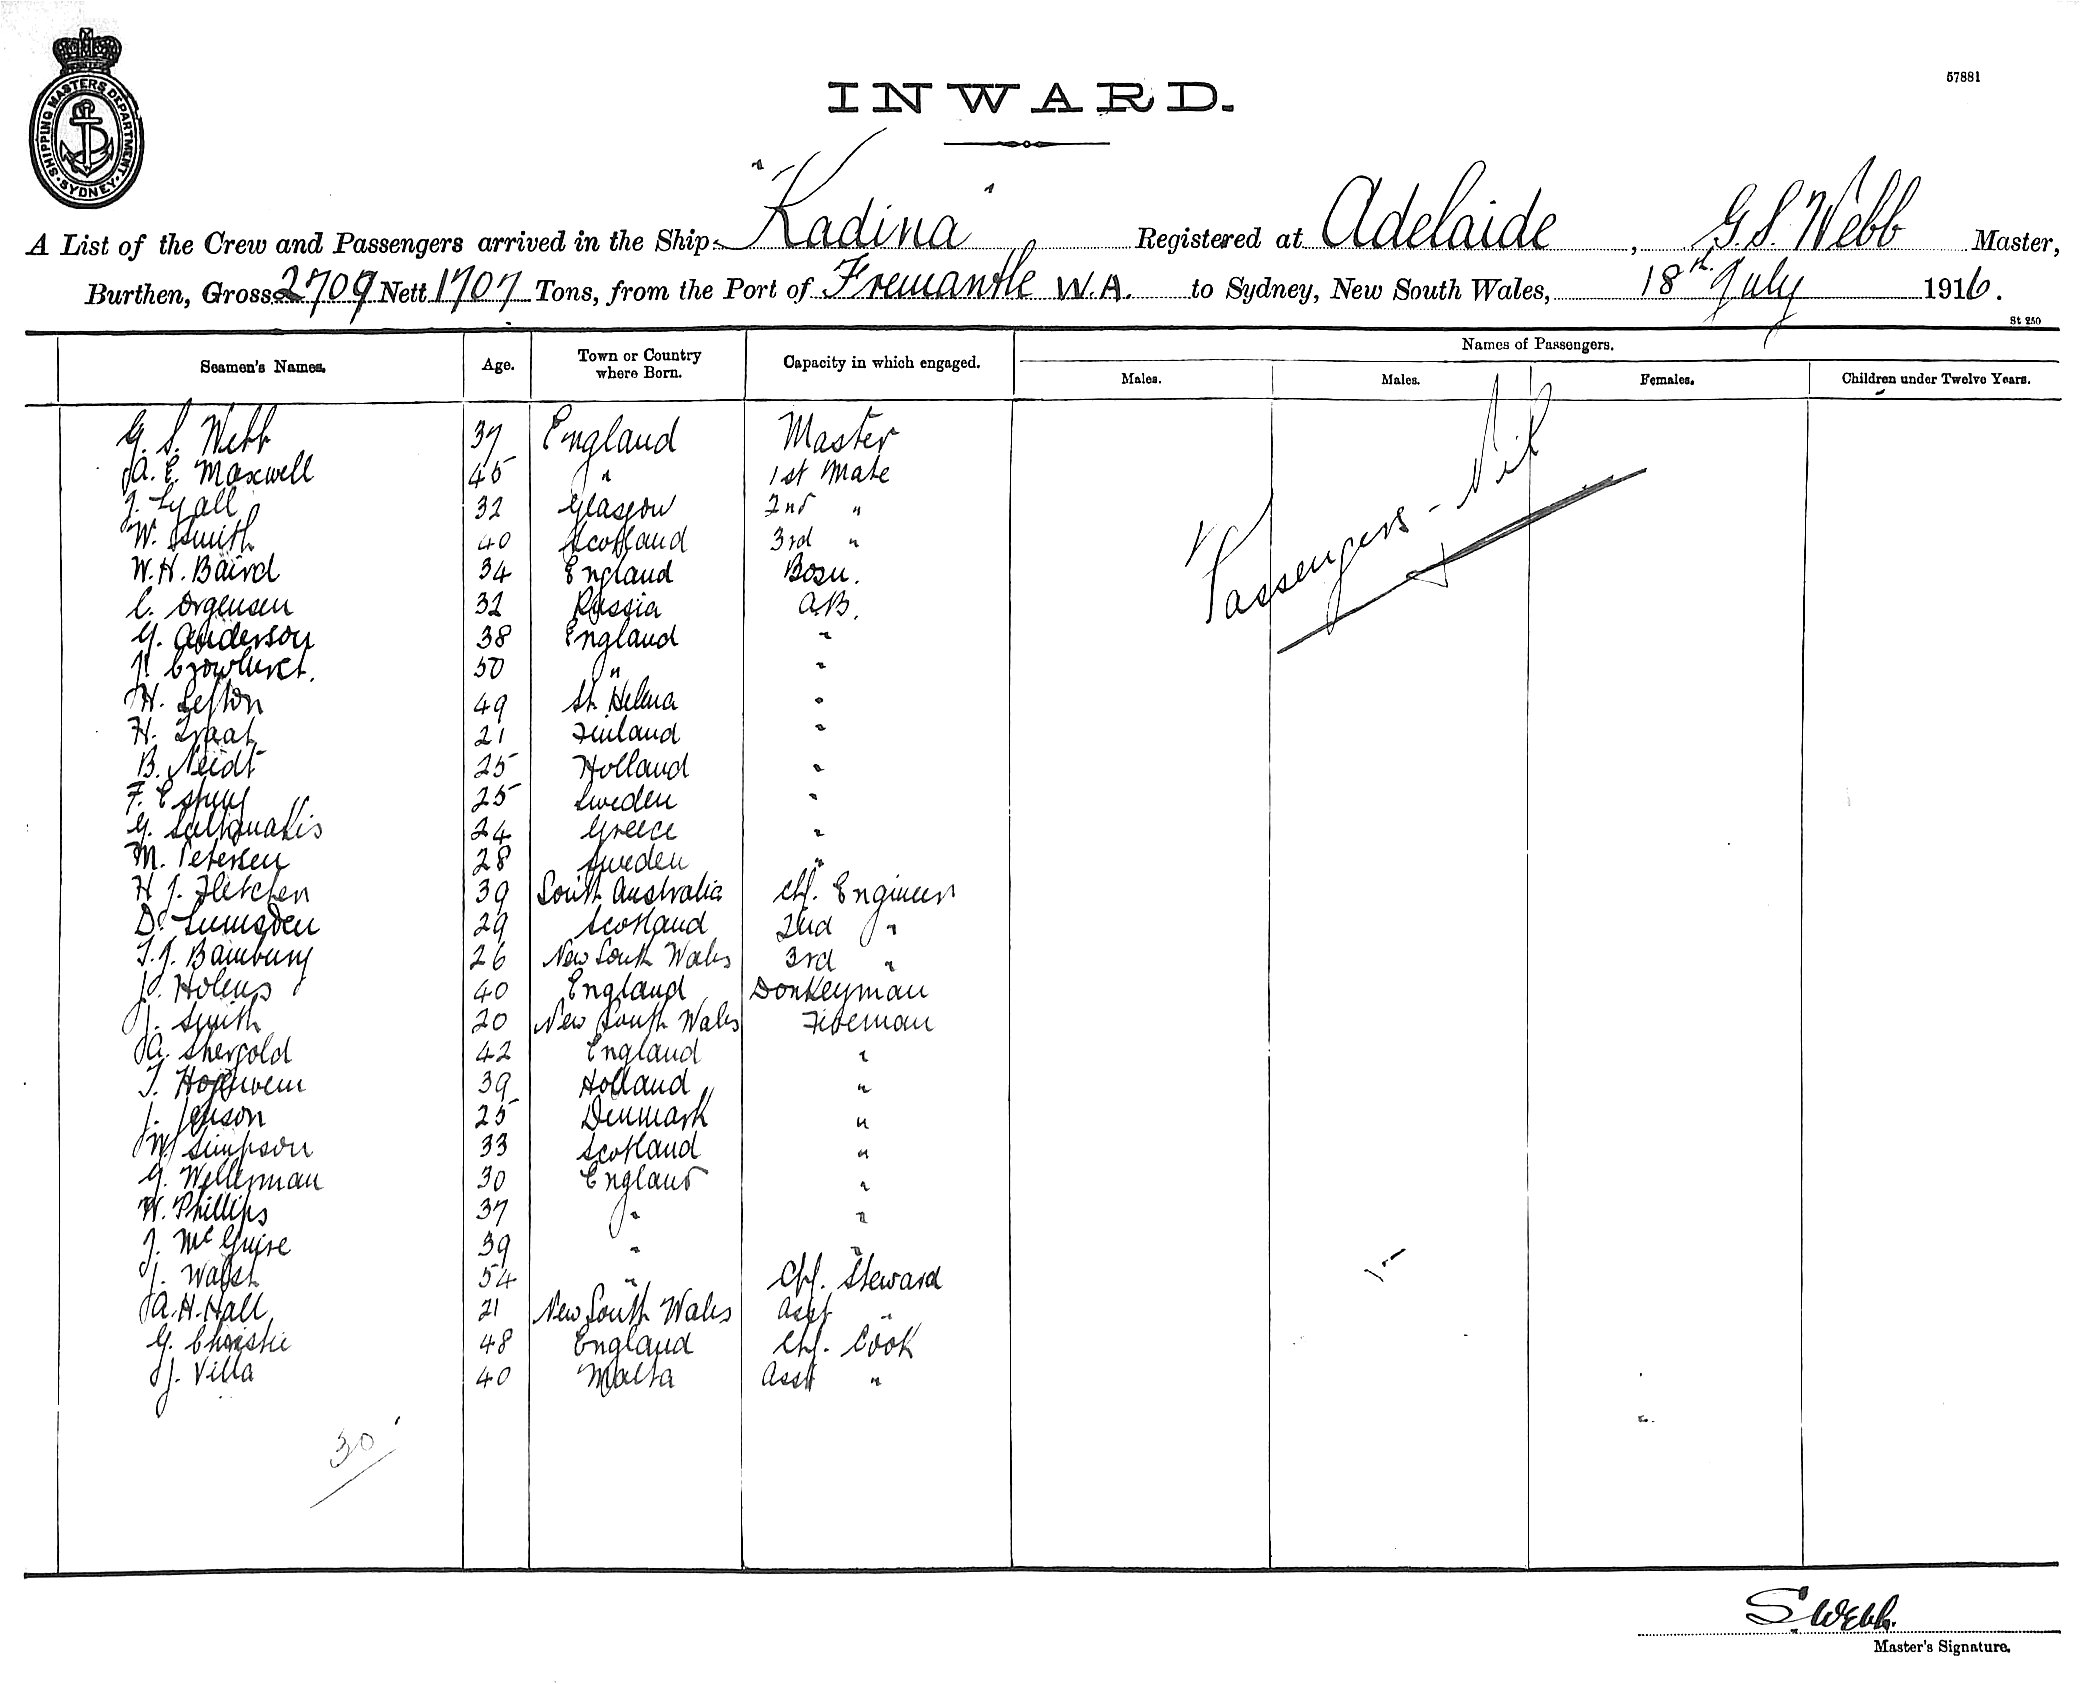 SHIPPING MASTERS DEPARTMENT · SYDNEY ·
57881
INWARD.
A List of the Crew and Passengers arrived in the Ship "Kadina" Registered at Adelaide, G. S. Webb Master,
Burthen, Gross 2709 Nett 1707 Tons, from the Port of Fremantle W.A. to Sydney, New South Wales, 18th July 1916.
St 250
Seamen's Names. Age. Town or Country where Born. Capacity in which engaged. Names of Passengers.
Males. Males. Females. Children under Twelve Years.
G. S. Webb 37 England Master
A. E. Maxwell 45 " 1st Mate
J. Lyall 32 Glasgow 2nd "
W. Smith 40 Scotland 3rd "
W. H. Baird 34 England Bosn.
C. Orgensen 32 Russia A.B.
G. Anderson 38 England "
50 " "
H. Lefton 49 St. Helena "
H. 21 Finland "
B. Neidt 25 Holland "
F. 25 Sweden "
G. 24 Greece "
M. Petersen 28 Sweden "
H. J. Fletcher 39 South Australia Chf. Engineer
D. Lumsden 29 Scotland 2nd "
T. J. Bambury 26 New South Wales 3rd "
J. 40 England Donkeyman
J. Smith 20 New South Wales Fireman
A. Shergold 42 England "
T. 39 Holland "
J. Jenson 25 Denmark "
W. Simpson 33 Scotland "
G. Wellerman 30 England "
W. Phillips 37 " "
J. McGuire 39 " "
J. Walsh 54 " Chf. Steward
A. H. Hall 21 New South Wales Asst "
G. Christie 48 England Chf. Cook
J. Villa 40 Malta Asst "
Passengers - Nil
30
S. Webb.
Master's Signature.